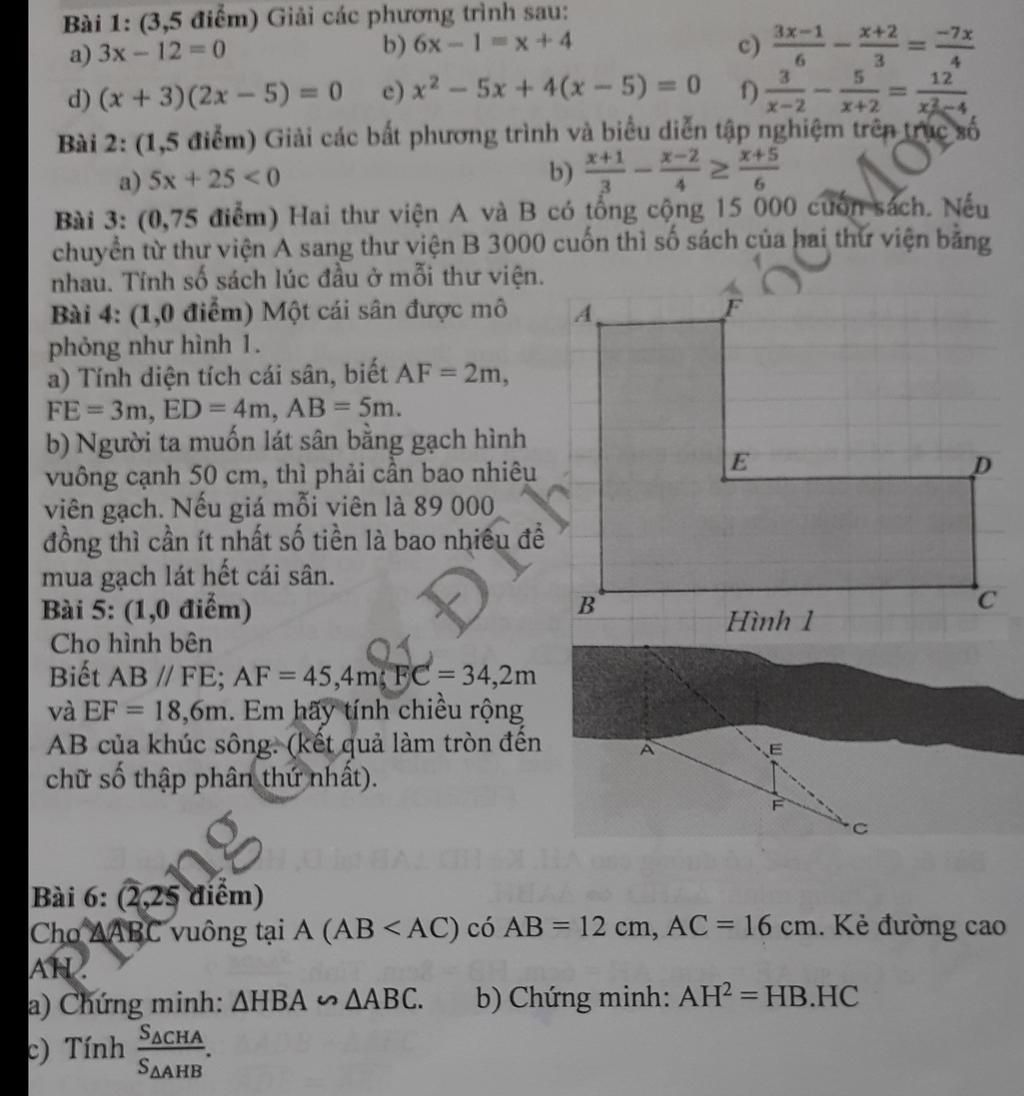 Bài 1: (3,5 điểm) Giải các phương trình sau:
a) 3x − 12 = 0 b) 6x − 1 = x + 4 c) \frac{3x−1}{6} − \frac{x+2}{3} = \frac{−7x}{4}
d) (x + 3)(2x − 5) = 0 e) x² − 5x + 4(x − 5) = 0 f) \frac{3}{x−2} − \frac{5}{x+2} = \frac{12}{x²−4}
Bài 2: (1,5 điểm) Giải các bất phương trình và biểu diễn tập nghiệm trên trục số
a) 5x + 25 < 0 b) \frac{x+1}{3} − \frac{x−2}{4} ≥ \frac{x+5}{6}
Bài 3: (0,75 điểm) Hai thư viện A và B có tổng cộng 15 000 cuốn sách. Nếu
chuyển từ thư viện A sang thư viện B 3000 cuốn thì số sách của hai thư viện bằng
nhau. Tính số sách lúc đầu ở mỗi thư viện.
Bài 4: (1,0 điểm) Một cái sân được mô
phỏng như hình 1.
a) Tính diện tích cái sân, biết AF = 2m,
FE = 3m, ED = 4m, AB = 5m.
b) Người ta muốn lát sân bằng gạch hình
vuông cạnh 50 cm, thì phải cần bao nhiêu
viên gạch. Nếu giá mỗi viên là 89 000
đồng thì cần ít nhất số tiền là bao nhiêu để
mua gạch lát hết cái sân.
A F
E D
B C
Hình 1
Bài 5: (1,0 điểm)
Cho hình bên
Biết AB // FE; AF = 45,4m; FC = 34,2m
và EF = 18,6m. Em hãy tính chiều rộng
AB của khúc sông. (kết quả làm tròn đến
chữ số thập phân thứ nhất).
A E
F
C
Bài 6: (2,25 điểm)
Cho ΔABC vuông tại A (AB < AC) có AB = 12 cm, AC = 16 cm. Kẻ đường cao
AH.
a) Chứng minh: ΔHBA ∽ ΔABC. b) Chứng minh: AH² = HB.HC
c) Tính \frac{S_{ΔCHA}}{S_{ΔAHB}}.
Phòng GD & ĐT h óc Môn